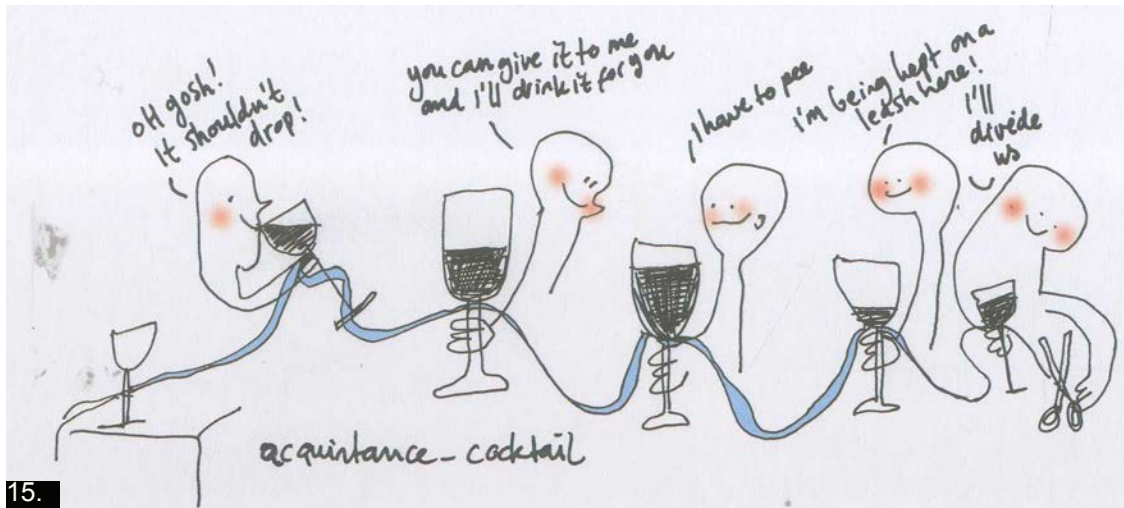 OH gosh!
it shouldn't
drop!
you can give it to me
and I'll drink it for you
I have to pee
i'm being kept on a
leash here!
i'll
divide
us
acquintance_cocktail
15.